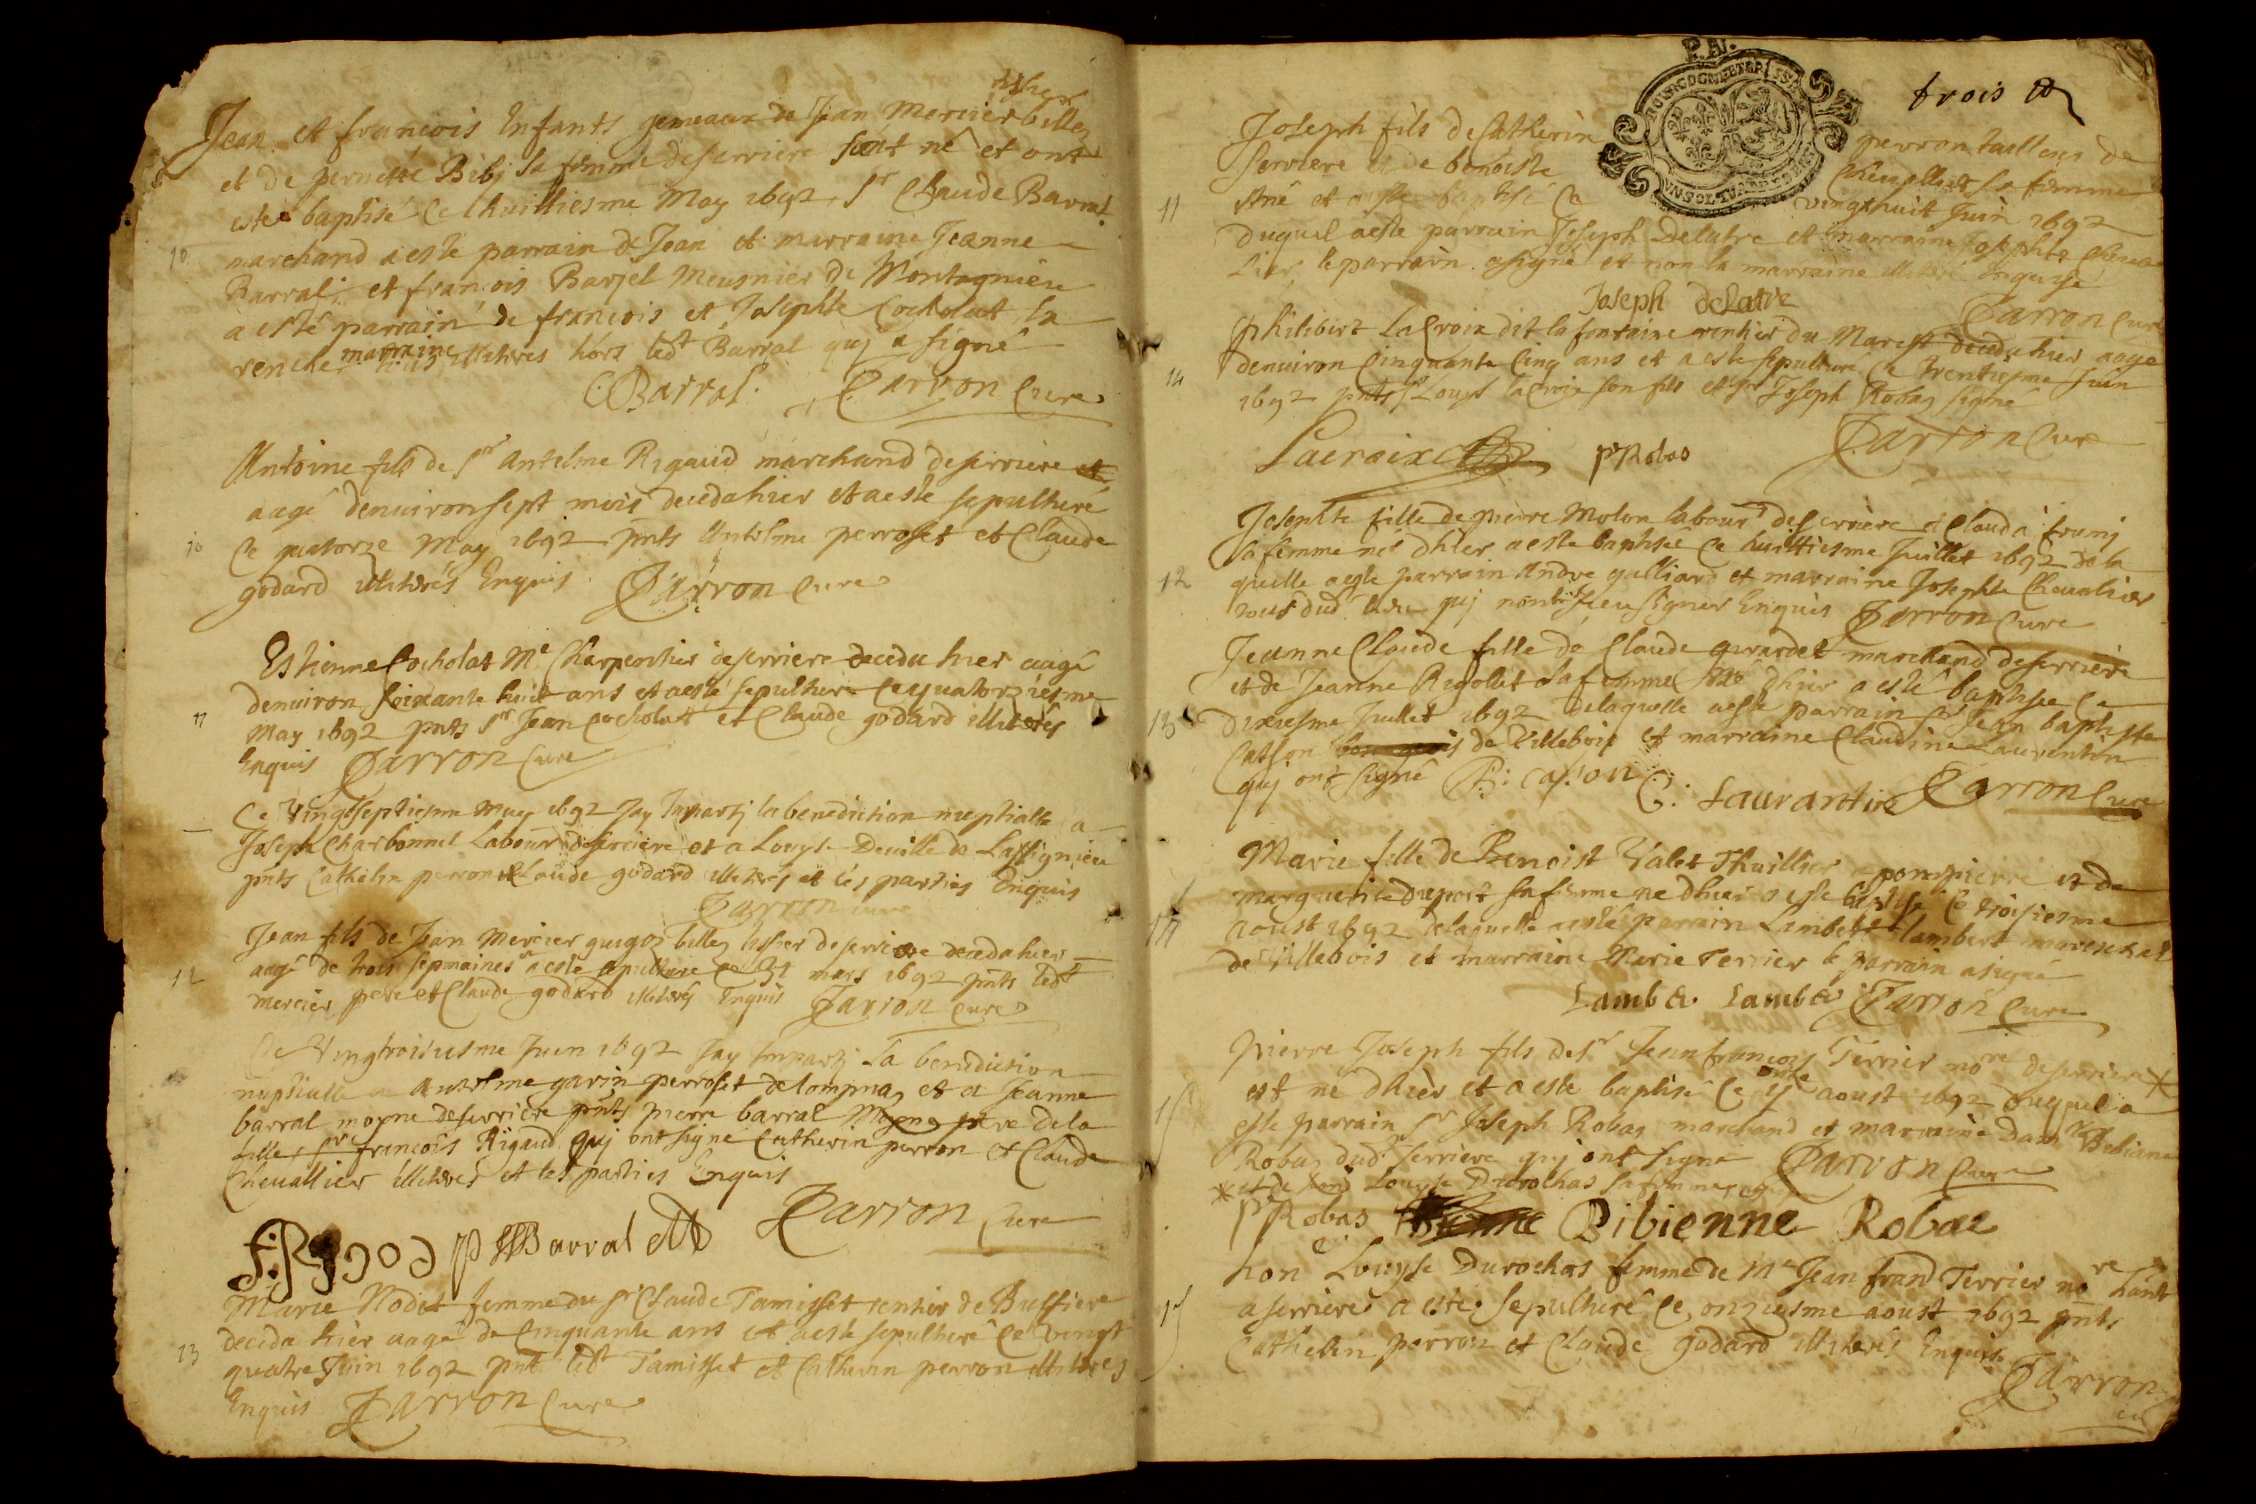 dhier
Jean et françois Enfants jemeaux de Jean Mercier billez
et de pernette Bibj sa femme deserriere sont né et ont
este baptisé Ce lhuittiesme May 1692, Sr Claude Barral
10 marchand a este parrain de Jean et marraine Jeanne
Barral, et francois Barjel Meusnier de Montagnieu
a esté parrain de francois et Josephte Cocholat la
marraine illiteres hors ledt Barral quj a signé
C: Barral. Parron Cure
Antoine fils de Sr Antelme Rigaud marchand deserriere et
aagé denuiron sept mois deceda hier et a este sepulturé
10 Ce quatorze May 1692 pnts Antelme perroset et Claude
godard illiterés Enquis Parron Cure
Estienne Cocholat Me Charpentier deserriere decedu hier aagé
denuiron soixante huict ans et a esté sepulture Ce quatorziesme
11 May 1692 pnts Sr Jean Cocholat et Claude godard illiterés
Enquis Parron Cure
Ce Vingtseptiesme may 1692 Jay Imparty la benediction nuptialle a
Joseph Charbonnel Labour deserriere et a Louyse Deuille de
pnts Cathelin perron et Claude godard illiterés et les parties Enquis
Parron Cure
Jean fils de Jean Mercier billez deserriere deceda hier
12 aagé de trois sepmaines a este sepulture Ce 31 mars 1692 pnts ledt
mercier pere et Claude godard illiterés Enquis Parron Cure
Ce Vingtroisiesme Juin 1692 Jay Imparty la benediction
nuptialle a Antelme garin perroset de lompnaz et a Jeanne
barral moyne deserriere pnts pierre barral Moyne pere de la
fille, Sr francois Rigaud quj ont signé Catherin perron et Claude
Cheuallier illiterés et les parties Enquis
Parron Cure
P Barral
Marie Nodet femme du Sr Claude Tamisset rentier de Buffiere
deceda hier aagé de Cinquante ans et a este sepulturé Ce Vingt
13 quatre Juin 1692 pnt ledt Tamisset et Catherin perron illiteres
Enquis Parron Cure
trois
Joseph fils de Catherin perron tailleur de
serriere et de benoiste Cheuallier sa femme
11 est né et a este baptisé Ce vingthuit Juin 1692
Duquel a este parrain Joseph Delatre et marraine Josephte
le parrain a signé et non la marraine illiteré Enquise
Joseph delatre Parron Cure
philibert LaCroix dit la fontaine rentier du Marest decedu hier aagé
14 denuiron Cinquante Cinq ans et a este sepulturé Ce trentiesme Juin
1692 pnts Sr Louys laCroix son fils et Sr Joseph Robaz signé
Lacroix Robas Parron Cure
Josephte fille de pierre Molon labour deserriere et Clauda
sa femme née dhier a este baptisée Ce huittiesme Juillet 1692 de la
12 quelle a este parrain Andre galliard et marraine Josephte Cheualier
tous dud lieu quj nont sceu signer Enquis Parron Cure
Jeanne Claude fille de Claude girardet marchand deserriere
et de Jeanne Rigollet sa femme née dhier a esté baptisée Ce
13 dixiesme Juillet 1692 delaquelle a este parrain Sr Jean baptiste
Catson de Villebois et marraine Claudine Laurentin
quj ont signé B: C: Laurantine Parron Cure
Marie fille de Benoist Valet Thuillier a pompierre et de
marguerite Duport sa femme ne dhier a este baptisé Ce troisiesme
14 aoust 1692 delaquelle a esté parrain Lambert lambert mareschal
de Villebois et marraine Marie Terrier le parrain a signé
Lamber Lamber Parron Cure
Pierre Joseph fils de Sr Jean francois Terrier nore deserriere *
est né dhier et a este baptisé Ce onze aoust 1692 duquel a
15 este parrain Sr Joseph Robaz marchand et marraine Bibiane
Robaz dud serriere quj ont signé Parron Cure
* et de hon Louyse Durochas sa femme
Robas Bibienne Robaz
hon Louyse Durochas femme de Me Jean frand Terrier nore hant
15 a serriere a esté sepulturé Ce onziesme aoust 1692 pnts
Cathelin perron et Claude godard illiterés Enquis
Parron